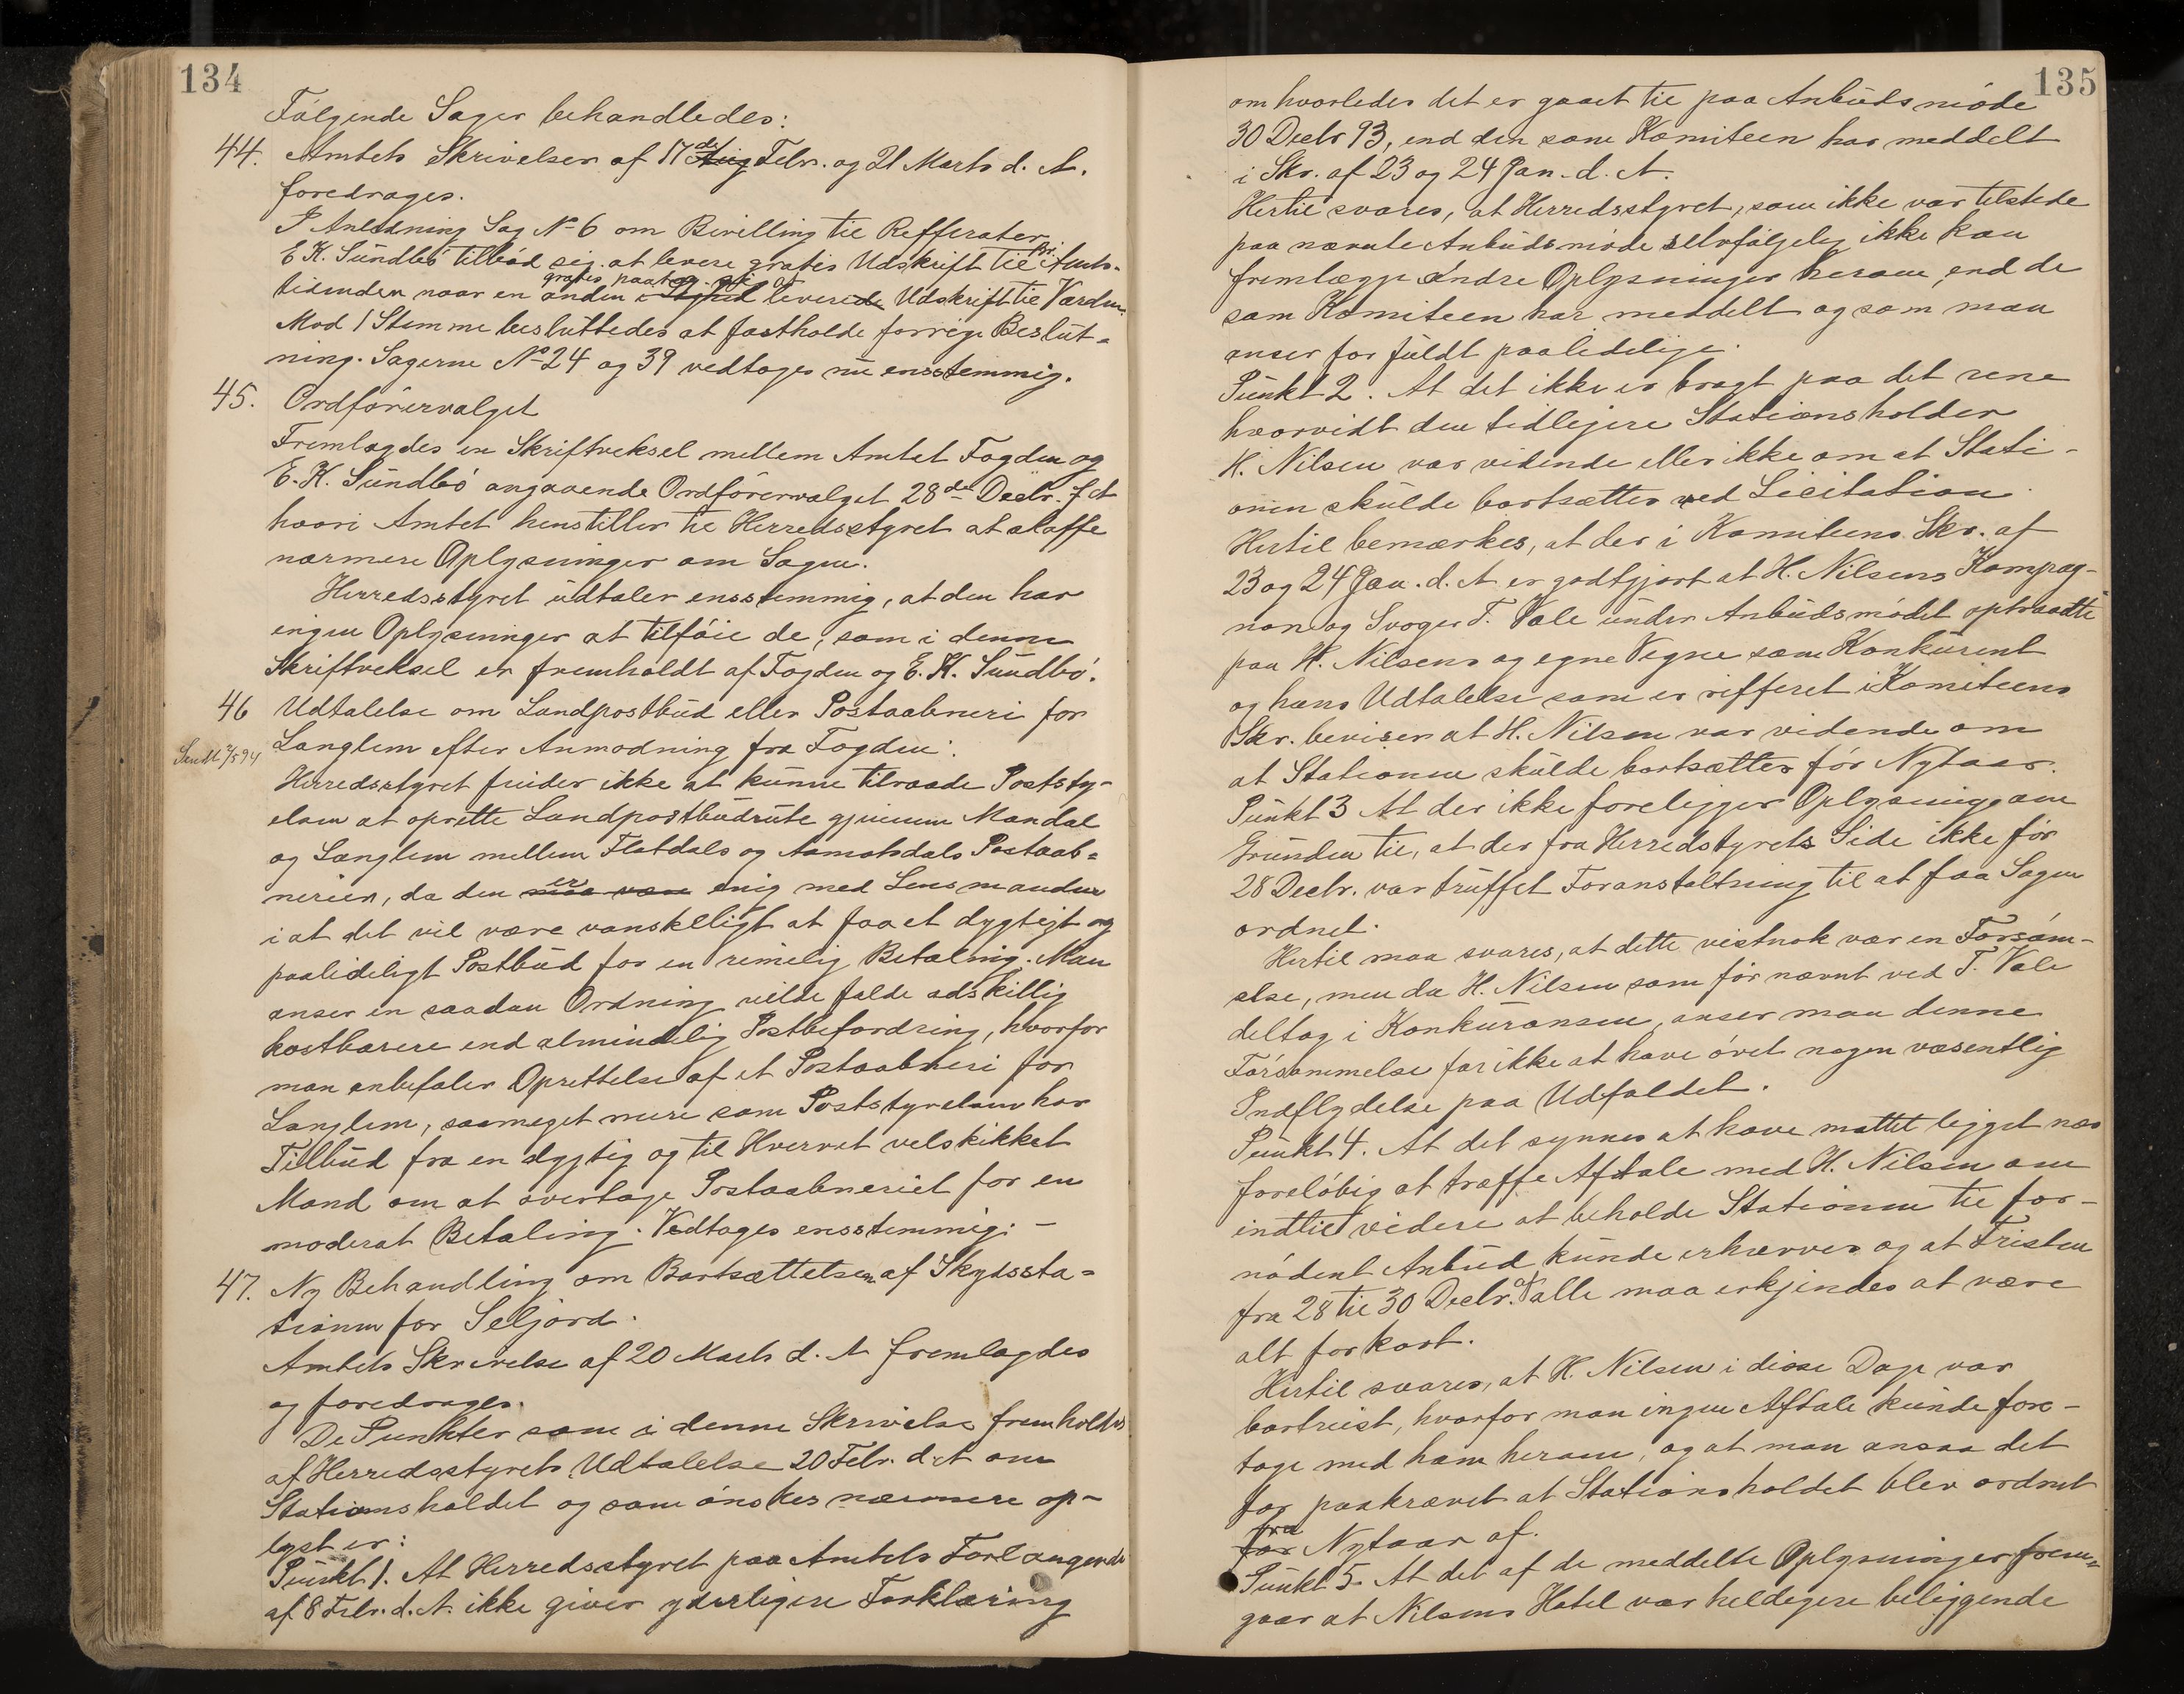 134
Følgende Sager behandledes:
44. Amtets Skrivelser af 17de Aug Febr. og 21 Marts d. A.
foredrages.
I Anledning Sag No 6 om Bevilling til Refferater
E K. Sundbö tilbød sig at levere gratis Udskrift til Amts-
tidenden naar en anden leverede Udskrift til Varden.
gratis paatog sig at
Mod 1 Stemme besluttedes at fastholde forrige Beslut-
ning. Sagerne No 24 og 39 vedtoges nu ensstemmig.
45. Ordførervalget
Fremlagdes en Skriftveksel mellem Amtet Fogden og
E. K. Sundbö angaaende Ordførervalget 28de Decbr. f A
hvori Amtet henstiller til Herredsstyret at skaffe
nærmere Oplysninger om Sagen.
Herredsstyret udtaler ensstemmig, at den har
ingen Oplysninger at tilføie de, som i denne
Skriftveksel er fremholdt af Fogden og E. K. Sundbö.
46 Udtalelse om Landpostbud eller Postaabneri for
Langlem efter Anmodning fra Fogden:
Sendt 2/5 94
Herredsstyret finder ikke at kunne tilraade Poststy-
elsen at oprette Landpostbudrute gjennem Mandal
og Langlem mellem Flatdals og Aamotsdals Postaab-
nerier, da den maa være er enig med Lensmanden
i at det vil være vanskelligt at faa et dygtigt og
paalideligt Postbud for en rimelig Betaling. Man
anser en saadan Ordning vilde falde adskillig
kostbarere end almindelig Postbefordring, hvorfor
man anbefaler Oprettelse af et Postaabneri for
Langlem, saameget mere som Poststyrelsen har
Tilbud fra en dygtig og til Hvervet velskikket
Mand om at overtage Postaabneriet for en
moderat Betaling. Vedtages ensstemmig. –
47. Ny Behandling om Bortsættelsen af Skydssta-
tionen for Seljord.
Amtets Skrivelse af 20 Marts d. A fremlagdes
og foredrages.
De Punkter som i denne Skrivelse fremholdes
af Herredsstyrets Udtalelse 20 Febr. d. A om
Stationsholdet og som ønskes nærmere op-
lyst er:
Punkt 1. At Herredsstyret paa Amtets Forlangende
af 8 Febr. d. A. ikke giver yderligere Forklaring
135
om hvorledes det er gaaet til paa Anbudsmøde
30 Decbr 93, end den som Komiteen har meddelt
i Skr. af 23 og 24 Jan. d. A.
Hertil svares, at Herredsstyret, som ikke var tilstede
paa nævnte Anbudsmøde selvfølgelig ikke kan
fremlægge andre Oplysninger herom, end de
som Komiteen har meddelt og som man
anser for fuldt paalidelige.
Punkt 2. At det ikke er bragt paa det rene
hvorvidt den tidligere Stationsholder
H. Nilsen var vidende eller ikke om at Stati-
onen skulde bortsættes ved Licitation.
Hertil bemærkes, at der i Komiteens Skr. af
23 og 24 Jan. d. A er godtgjort at H. Nilsens Kompag-
non og Svoger T. Vale under Anbudsmødet optraadte
paa H. Nilsens og egne Vegne som Konkurent
og hans Udtalelse som er refferet i Komiteens
Skr. beviser at H. Nilsen var vidende om
at Stationen skulde bortsættes før Nytaar.
Punkt 3 At der ikke foreligger Oplysning om
Grunden til, at der fra Herredstyrets Side ikke før
28 Decbr. var truffet Foranstaltning til at faa Sagen
ordnet.
Hertil maa svares, at dette vistnok var en Forsøm-
else, men da H. Nilsen som før nævnt ved T. Vale
deltog i Konkuransen, anser man denne
Forsømmelse for ikke at have øvet nogen væsentlig
Indflydelse paa Udfaldet.
Punkt 4. At det synnes at have mattet ligget nær
foreløbig at træffe Aftale med H. Nilsen om
indtil videre at beholde Stationen til for-
nødent Anbud kunde erhverves og at Fristen
fra 28 til 30 Decbr. af alle maa erkjendes at være
alt for kort.
Hertil svares, at H. Nilsen i disse Dage var
bortreist, hvorfor man ingen Aftale kunde fore-
tage med ham herom, og at man ansaa det
for paakrævet at Stationsholdet blev ordnet
for fra Nytaar af.
Punkt 5. At det af de meddelte Oplysninger frem-
gaar at Nilsens Hotel var heldigere beliggende